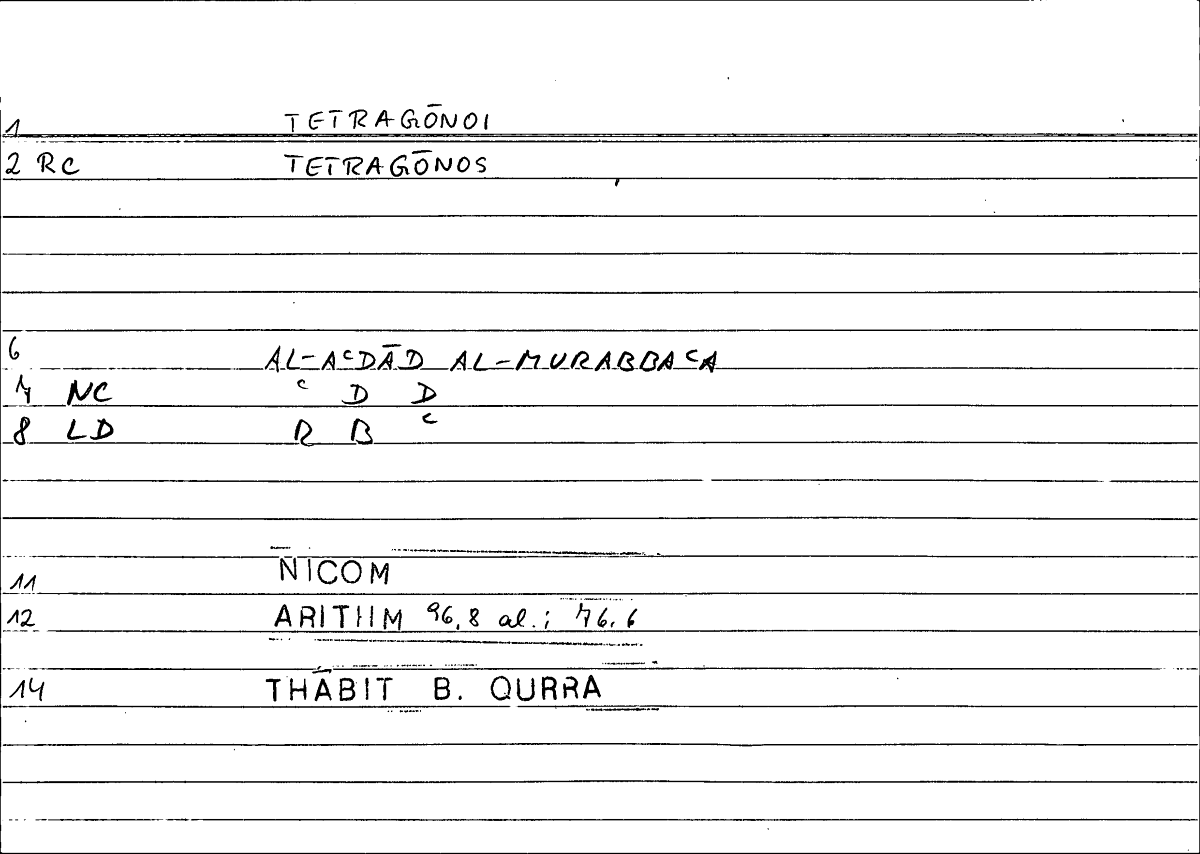 1 TETRAGŌNOI
2 RC TETRAGŌNOS
6 AL-AᶜDĀD AL-MURABBAᶜA
7 NC ᶜ D D
8 LD R B ᶜ
11 NICOM
12 ARITHM 96,8 al.; 76.6
14 THĀBIT B. QURRA